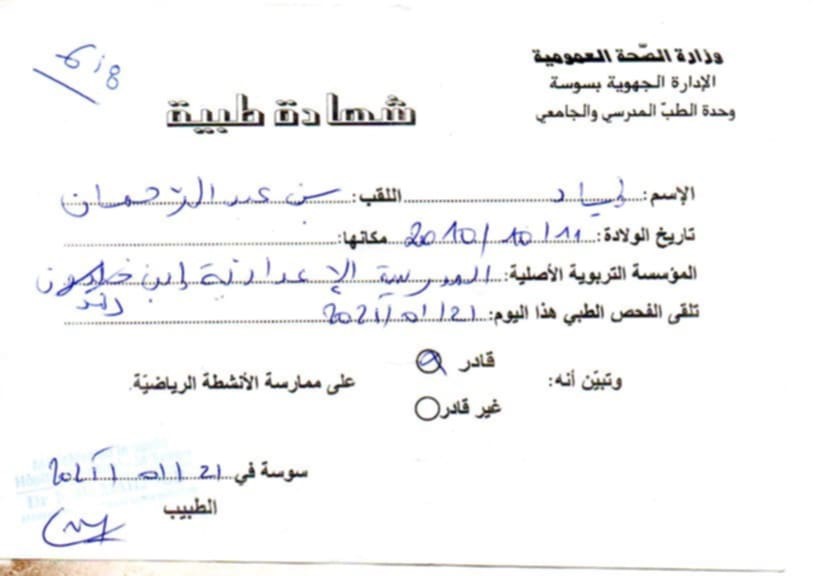 وزارة الصّحة العمومية
الإدارة الجهوية بسوسة
وحدة الطبّ المدرسي والجامعي
شهادة طبية
الإسم: إياد اللقب: بن عبد الرحمان
تاريخ الولادة: 11 / 10 / 2010 مكانها:
المؤسسة التربوية الأصلية: المدرسة الإعدادية إبن خلدون
تلقى الفحص الطبي هذا اليوم: 21 / 01 /
وتبيّن أنه:
قادر
غير قادر
على ممارسة الأنشطة الرياضيّة.
سوسة في 21 / 01 /
الطبيب